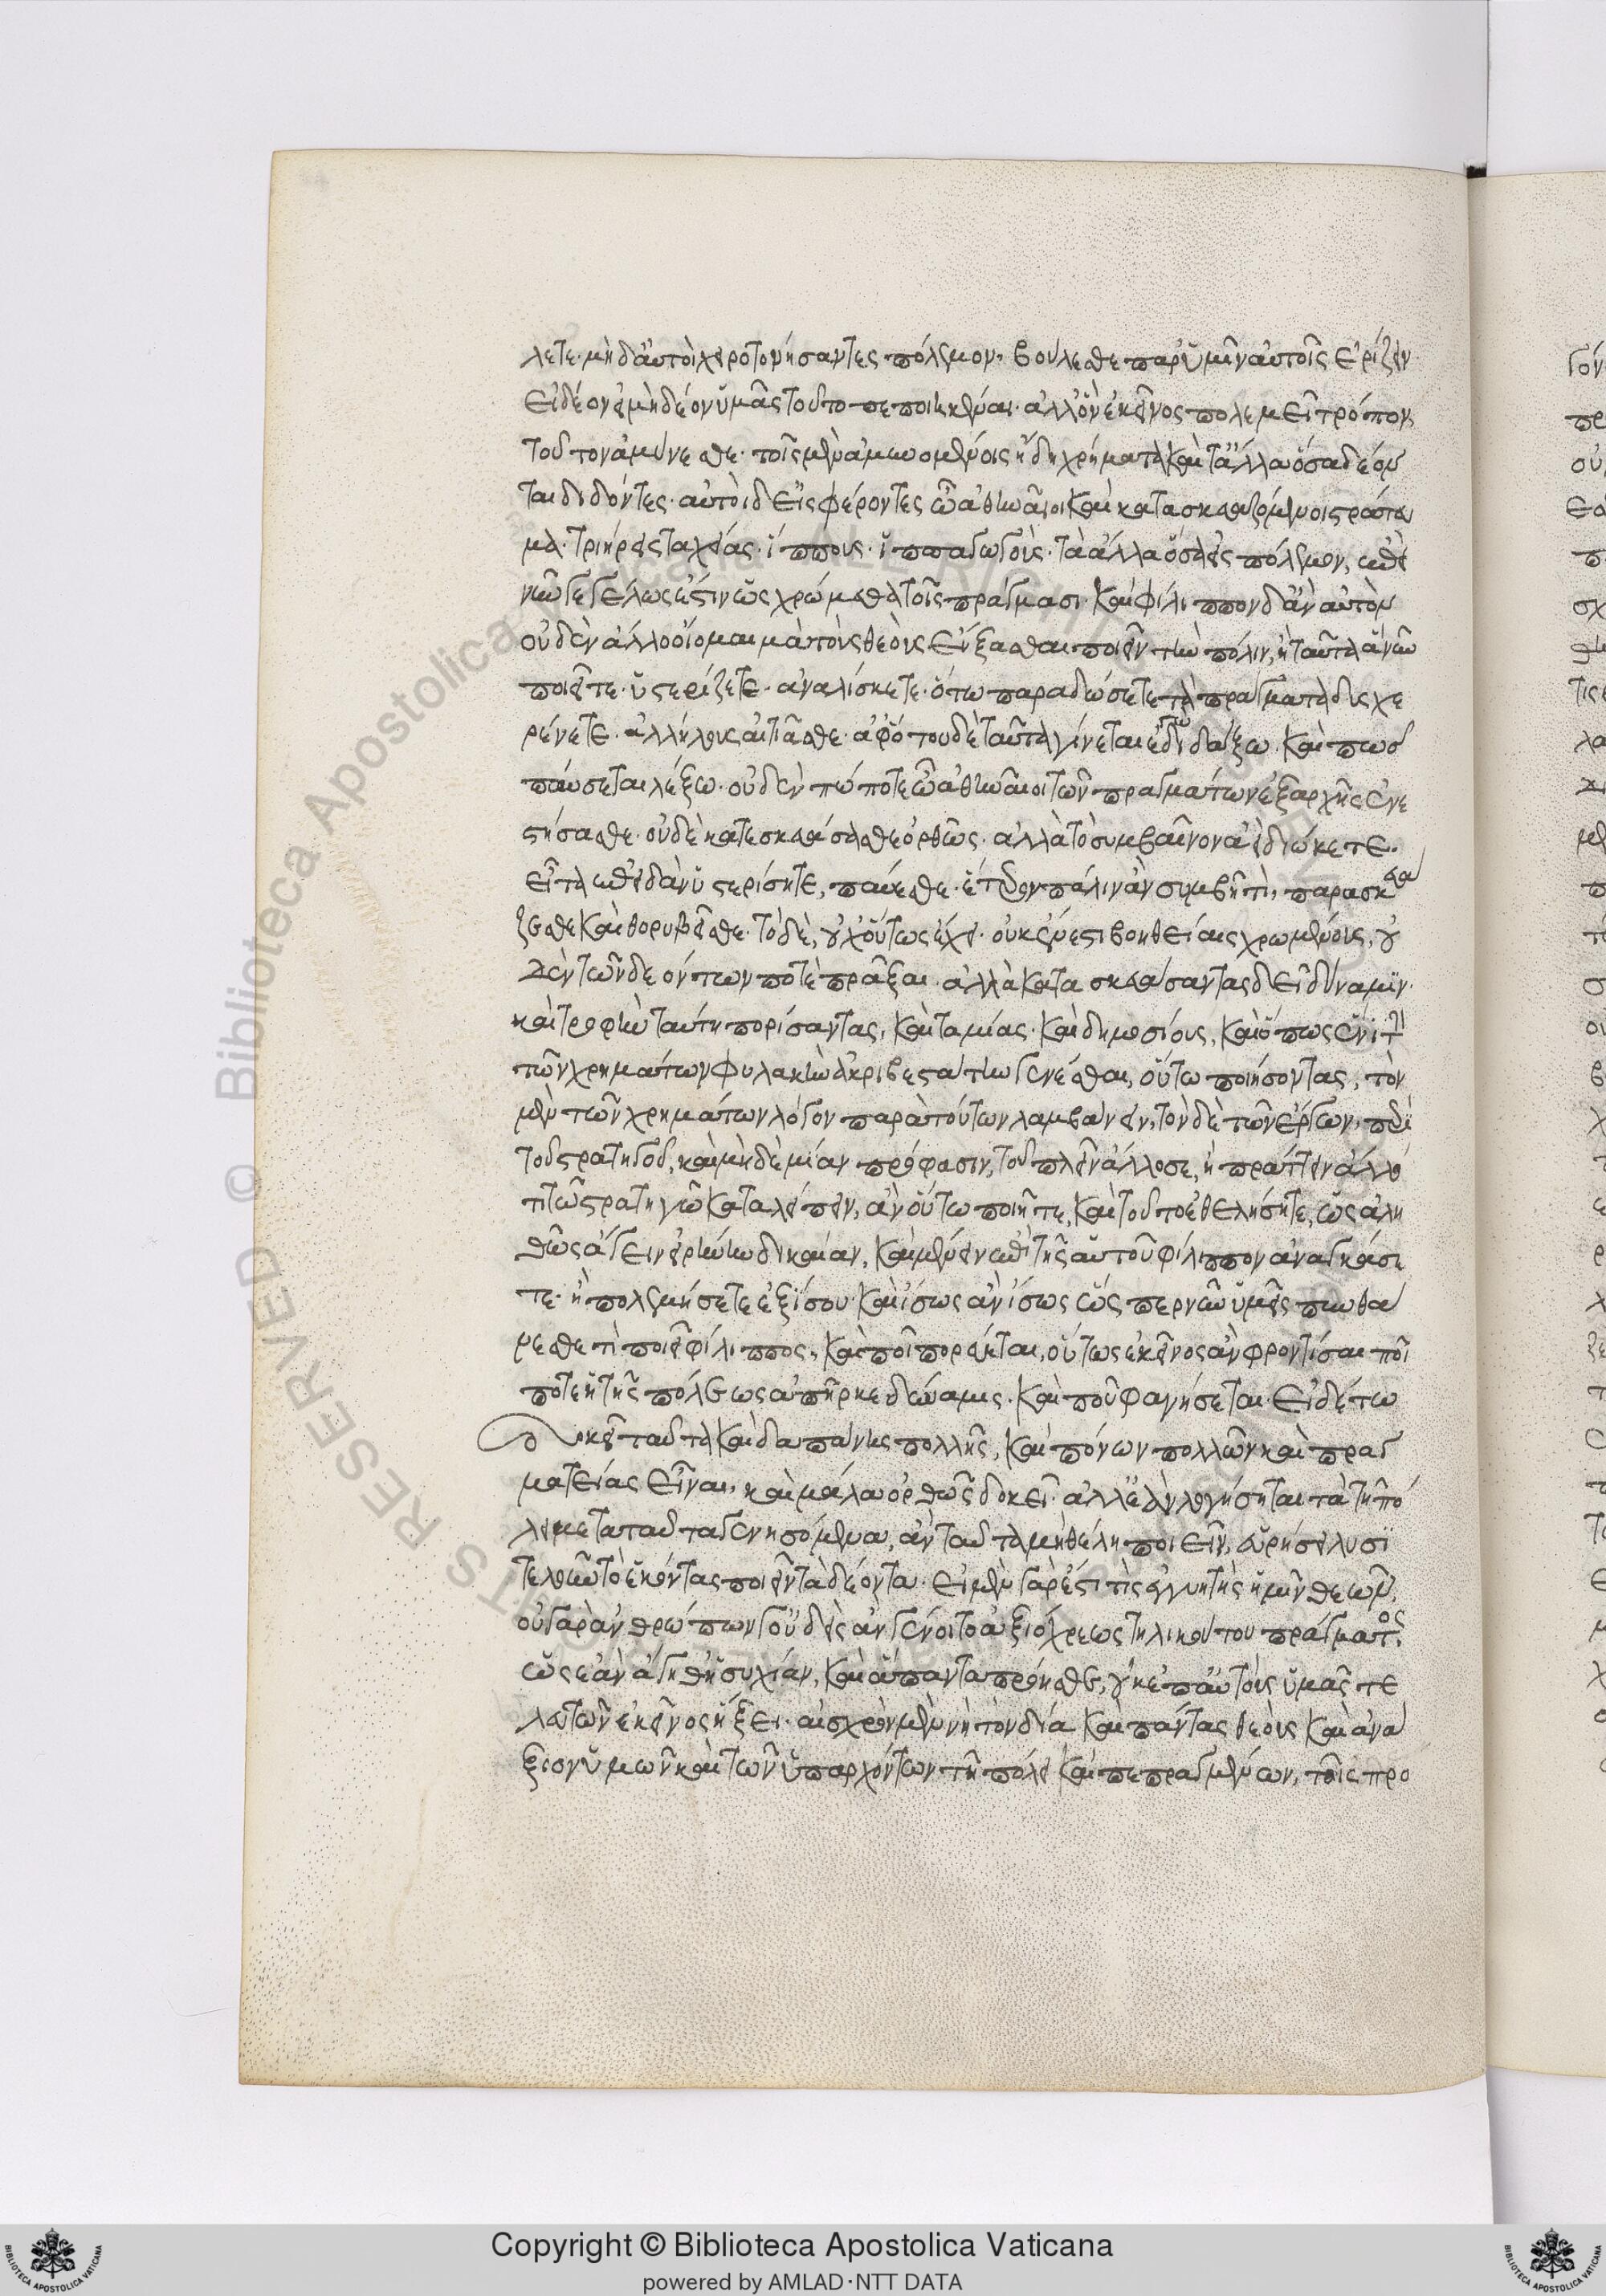 λετε· μὴ δ' αὐτοὶ χειροτονήσαντες πόλεμον, βούλεσθε παρ' ὑμῖν αὐτοῖς ἐρίζειν
εἰ δέον ἢ μὴ δέον ὑμᾶς τοῦτο πεποιηκέναι· ἀλλ' ὃν ἐκεῖνος πολεμεῖ τρόπον,
τοῦτον ἀμύνεσθε· τοῖς μὲν ἀμυνομένοις ἤδη χρήματα καὶ τἄλλα ὅσα δέον
ται διδόντες· αὐτοὶ δ' εἰσφέροντες ὦ ἀθηναῖοι καὶ κατασκευαζόμενοι στράτευ
μα· τριήρεις ταχείας· ἵππους· ἱππαγωγοὺς· τὰ ἄλλα ὅσα εἰς πόλεμον, ἐπεὶ
νῦν γε γέλως ἐστὶν ὡς χρώμεθα τοῖς πράγμασι· καὶ φίλιππον δ' ἂν αὐτὸν
οὐδὲν ἄλλο οἴομαι μὰ τοὺς θεοὺς εὔξασθαι ποιεῖν τὴν πόλιν, ἢ ταῦτα ἃ νῦν
ποιεῖτε· ὑστερίζετε· ἀναλίσκετε· ὅτω παραδώσετε τὰ πράγματα δυσχε
ραίνετε· ἀλλήλους αἰτιᾶσθε· ἀφ' ὅτου δὲ ταῦτα γίνεται ἐγὼ διδάξω· καὶ πως
παύσεται λέξω· οὐδὲν πώποτε ὦ ἀθηναῖοι τῶν πραγμάτων ἐξ ἀρχῆς ἐνε
στήσασθε· οὐδὲ κατεσκευάσασθε ὀρθῶς· ἀλλὰ τὸ συμβαῖνον ἀεὶ διώκετε·
εἶτα ἐπειδὰν ὑστερίσητε, παύεσθε· ἕτερον πάλιν ἂν συμβῇ τι, παρασκευά
ζεσθε καὶ θορυβεῖσθε· τὸ δὲ, οὐχ οὕτως ἔχει· οὐκ ἔνεστι βοηθείαις χρωμένους, οὐ
δὲν τῶν δεόντων ποτὲ πρᾶξαι· ἀλλὰ κατασκευάσαντας δεῖ δύναμιν·
καὶ τροφὴν ταύτη πορίσαντας, καὶ ταμίας· καὶ δημοσίους, καὶ ὅπως ἔνι τὴν
τῶν χρημάτων φυλακὴν ἀκριβεστάτην γενέσθαι, οὕτω ποιήσοντας, τὸν
μὲν τῶν χρημάτων λόγον παρὰ τούτων λαμβάνειν, τὸν δὲ τῶν ἔργων, παρὰ
τοῦ στρατηγοῦ, καὶ μηδὲ μίαν πρόφασιν, τοῦ πλεῖν ἄλλοσε, ἢ πράττειν ἄλλό
τι τῶ στρατηγῶ καταλείπειν, ἂν οὕτω ποιῆτε, καὶ τοῦτο ἐθελήσητε, ὡς ἀλη
θῶς ἄγειν εἰρήνην δικαίαν, καὶ μένειν ἐπὶ τῆς αὑτοῦ φίλιππον ἀναγκάσε
τε· ἢ πολεμήσετε ἐξίσου· καὶ ἴσως ἂν ἴσως ὥσπερ νῦν ὑμεῖς πυνθά
νεσθε τί ποιεῖ φίλιππος, καὶ ποῖ πορεύεται, οὕτως ἐκεῖνος ἂν φροντίσαι ποῖ
ποτε ἡ τῆς πόλεως ἀπῆρκε δύναμις· καὶ ποῦ φανήσεται· εἰ δέ τω
δοκεῖ ταῦτα καὶ δαπάνης πολλῆς, καὶ πόνων πολλῶν καὶ πραγ
ματείας εἶναι, καὶ μάλα ὀρθῶς δοκεῖ· ἀλλ' ἐὰν λογίσηται τὰ τῆ πό
λει μετὰ ταῦτα γενησόμενα, ἂν ταῦτα μὴ θέλη ποιεῖν, εὑρήσει λυσι
τελοῦν τὸ ἑκόντας ποιεῖν τὰ δέοντα· εἰ μὲν γάρ ἐστί τις ἐγγυητὴς ἡμῖν θεῶν,
οὐ γὰρ ἀνθρώπων γ' οὐδεὶς ἂν γένοιτο ἀξιόχρεως τηλικούτου πράγματος,
ὡς ἐὰν ἄγηθ' ἡσυχίαν, καὶ ἅπαντα πρόησθε, οὐκ ἐπ' αὐτοὺς ὑμᾶς τε
λευτῶν ἐκεῖνος ἥξει· αἰσχρὸν μὲν νὴ τὸν δία καὶ πάντας θεοὺς καὶ ἀνά
ξιον ὑμῶν καὶ τῶν ὑπαρχόντων τῆ πόλει καὶ πεπραγμένων, τοῖς προ
Copyright © Biblioteca Apostolica Vaticana
powered by AMLAD·NTT DATA